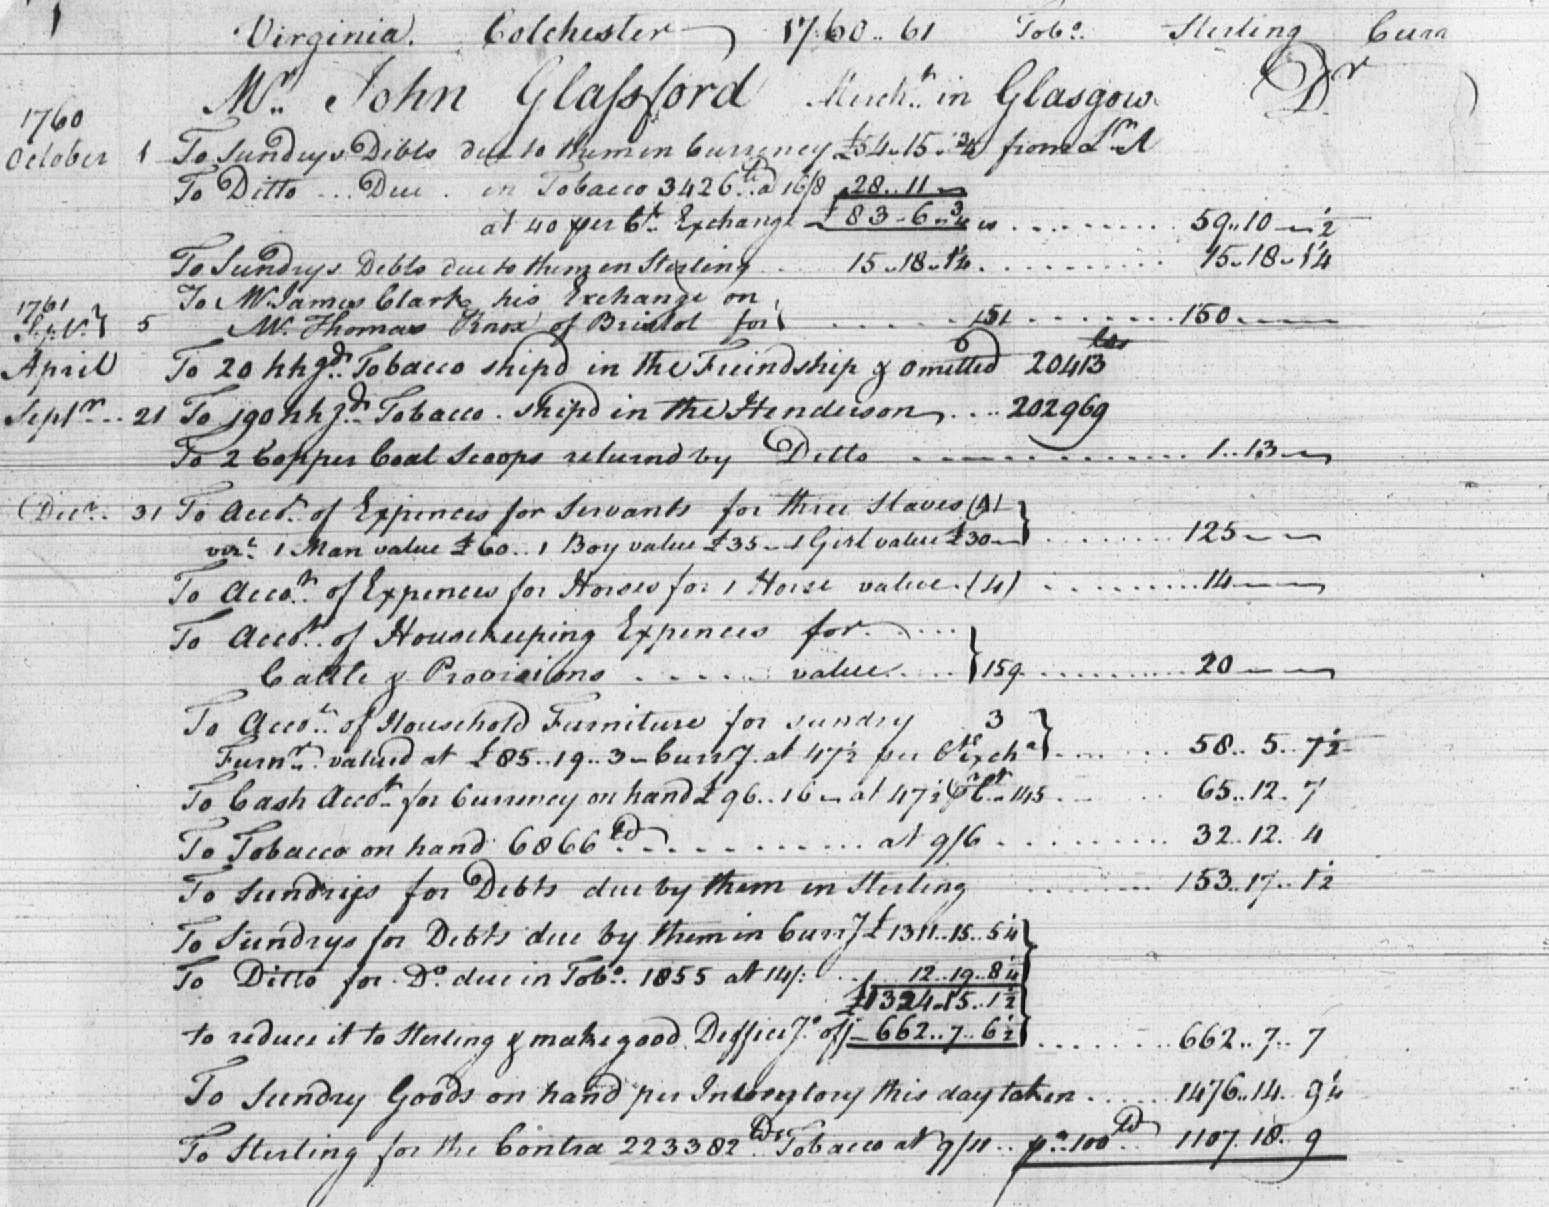 1
Virginia. Colchester 1760..61 Tobo. Sterling Curr
Mr. John Glassford Mercht. in Glasgow Dr
1760
October 1 To Sundrys Debts due to them in Currency £54..15..¾ from Lr. A
To Ditto ... Due . in Tobacco 3426 lb a 16/8 28..11—
at 40 per Ct. Exchange £83..6..¾ is ........ 59..10—½
To Sundrys Debts due to them in Sterling .. 15..18..1¼ ........ 15..18..1¼
To Mr. James Clark his Exchange on
1761
Septr. 5 Mr. Thomas Knox of Bristol for ...... 151 ....... 150 ——
April To 20 hhgds. Tobacco shipd in the Freindship & omitted 20413 lbs
Septr.. 21 To 190 hhgds. Tobacco . shipd in the Henderson .... 202969
To 2 Copper Coal Scoops returnd by Ditto ............ 1..13—
Decr.. 31 To Accot. of Expences for Servants for three Slaves
vizt. 1 Man value £60..1 Boy value £35—1 Girl value £30— ........ 125——
To Accot. of Expences for Horses for 1 Horse value. (4) ........ 14——
To Accot. of Housekeeping Expences for ....
Cattle & Provisions ...... value .... 159 .......... 20——
To Accot. of Household Furniture for sundry 3
Furnr. valued at £85..19..3—Curry. at 47½ per Ct. exch ...... 58..5..7½
To Cash Accot. for Currency on hand £96..16— at 47½ Ct. 145 ... 65..12..7
To Tobacco on hand 6866 lb .......... at 9/6 ......... 32..12..4
To Sundrys for Debts due by them in Sterling ....... 153..17..1½
To Sundrys for Debts due by them in Curry £1311..15..5¼
To Ditto for Do. due in Tobo. 1855 at 14/. .. 12..19..8¼
£1324..15..1½
to reduce it to Sterling & make good Defficiy. off—662..7..6½ ....... 662..7..7
To Sundry Goods on hand per Inventory this day taken ..... 1476..14..9¼
To Sterling for the Contra 223382 lbs Tobacco at 9/11 .. pr. 100 lb 1107.18..9